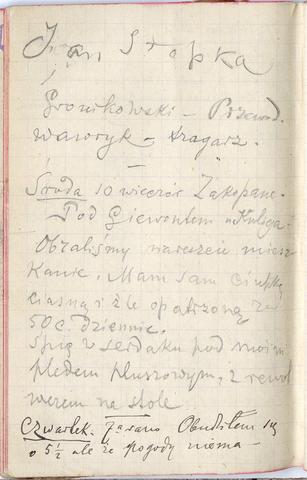 Jan Stopka
Gronikowski – Przewod.
waworyk – tragarz.
–
Środa 10 wieczór Zakopane.
Pod Giewontem u Kuliga.
Obraliśmy nareszcie miesz
kanie. Mam sam ciupkę
ciasną i źle opatrzoną za
50 c. dziennie.
Śpię w serdaku pod moim
pledem pluszowym, z rewol
werem na stole
Czwartek. rano Obudziłem się
o 5½ ale że pogody niema –